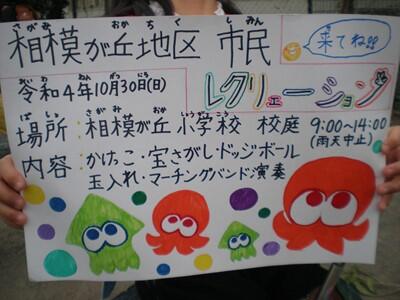 相模が丘地区 市民
さがみ おかちく しみん
来てね!!
令和4年10月30日(日)
れいわ ねん がつ にち
レクリェーション
場所:相模が丘小学校 校庭 9:00〜14:00
ばしょ さがみ おか しょうがっこう こうてい
(雨天中止)
内容:かけっこ・宝さがし・ドッジボール
ないよう
玉入れ・マーチングバンド演奏